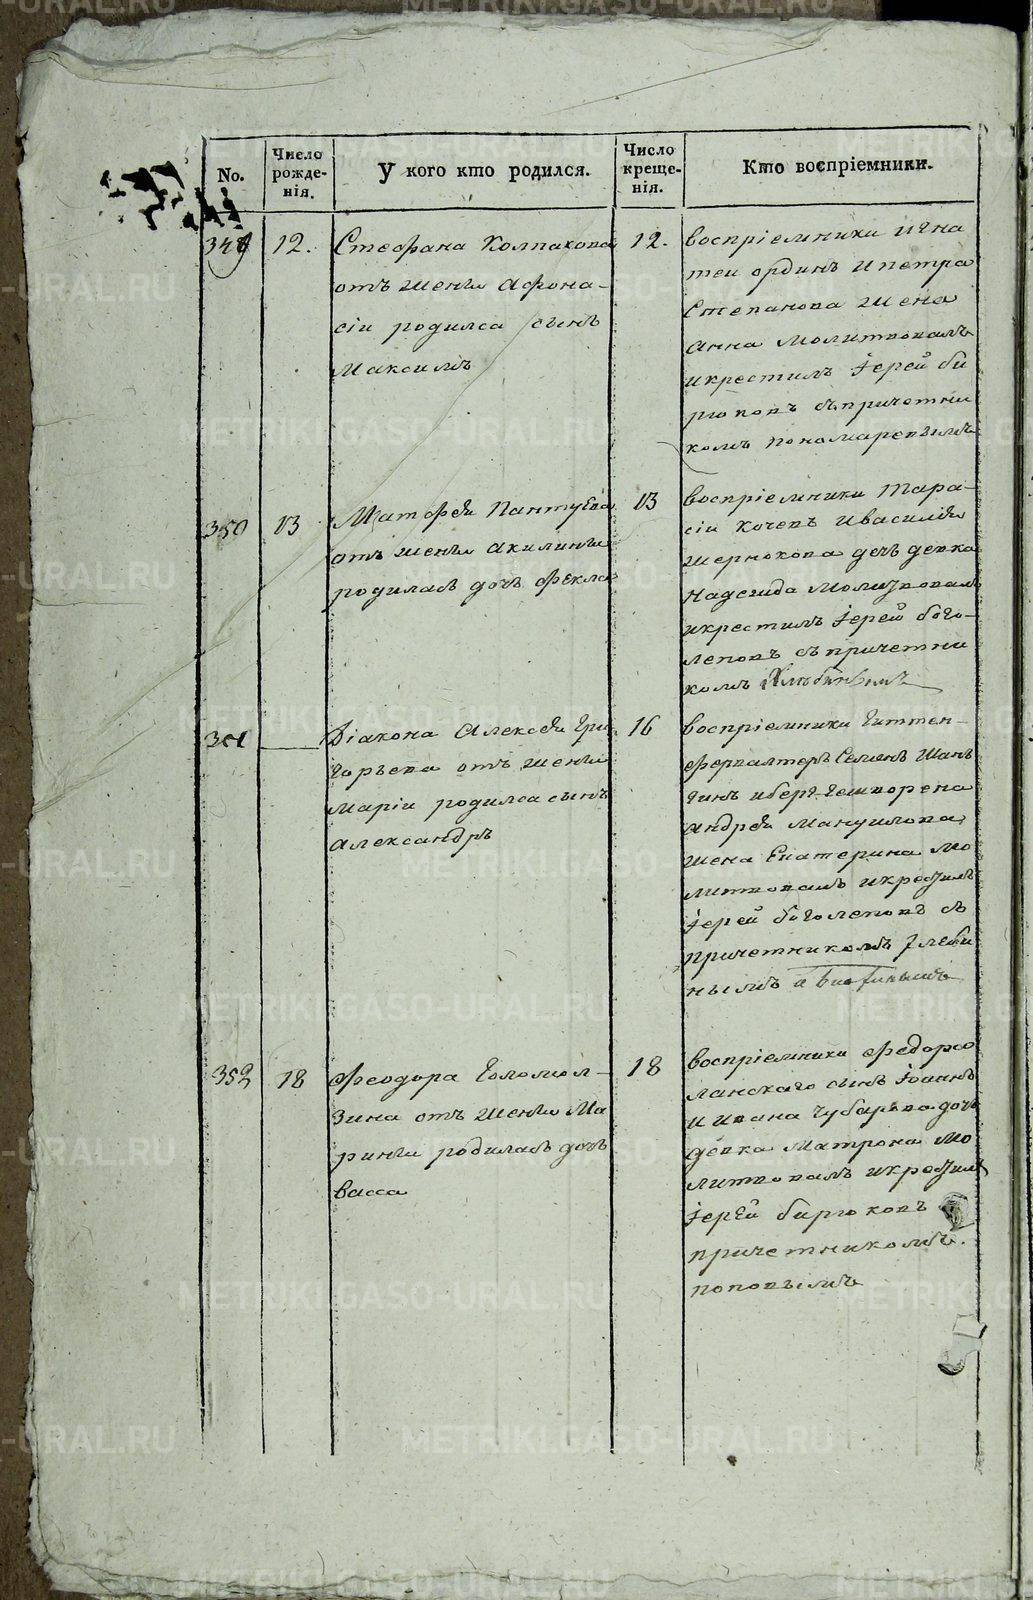 No.
Число рожде-нія.
У кого кто родился.
Число креще-нія.
Кто воспріемники.
349
12.
Стефана Колпакова
отъ жены Афона-
сіи родился сынъ
Максимъ
12.
воспріемники Игна
теи ординъ и петра
Степанова жена
анна молитвовалъ
и крестилъ іерей би
рюковъ съ причетни
комъ пономаревымъ
350
13
Матфея Пантуева
отъ жены акилины
родилась дочь фекла
13
воспріемники Тара-
сіи кочевъ и василія
жернокова дочь девка
надежда молитвовалъ
и крестилъ іерей бого-
леповъ съ причетни
комъ
351
Діакона Алексея Гри
горьева отъ жены
маріи родился сынъ
александръ
16
воспріемники гиттен-
фервалтеръ Семенъ Шань
гинъ и берг-гешворена
андрея мануилова
жена Екатерина мо
литвовалъ и крестилъ
іерей боголеповъ съ
причетникомъ Глеби
нымъ и
352
18
Феодора Голомол-
зина отъ жены Ма
рины родилась дочь
васса
18
воспріемники Федора
ланскаго сынъ Іоаннъ
и ивана Чубарова дочь
девка матрона мо
литвовалъ и крестилъ
іерей бирюковъ
причетникомъ.
поповымъ
METRIKI.GASO-URAL.RU